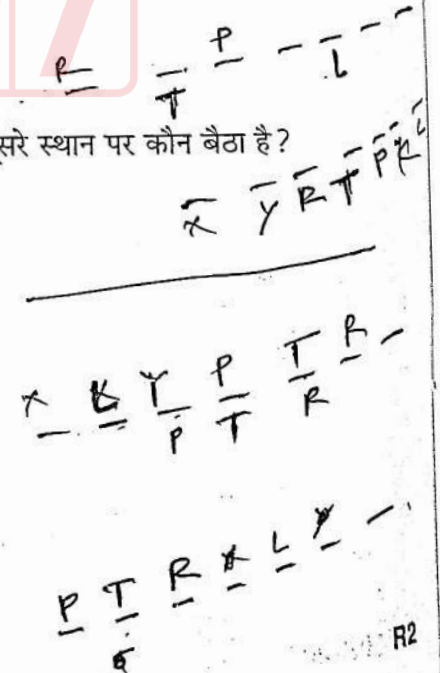 7
R T P L
सरे स्थान पर कौन बैठा है?
X Y R T P K L
X L Y P T R
P T R
P T R X L Y
R2